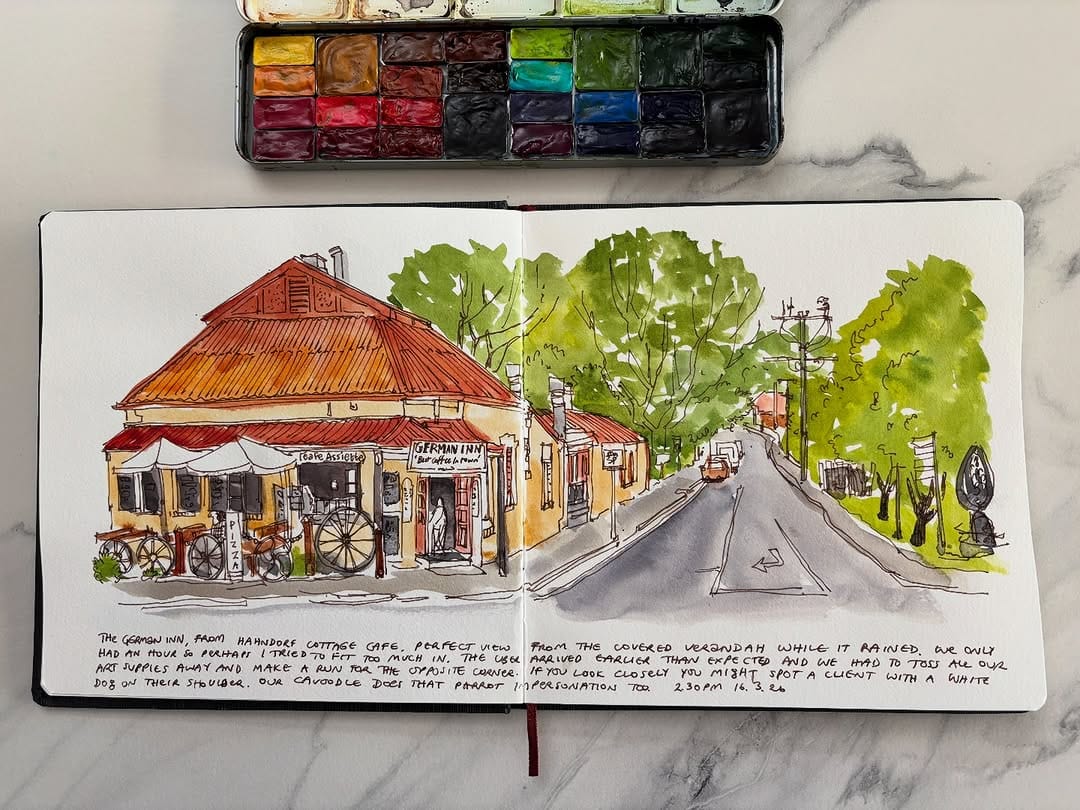 Cafe Assiette
GERMAN INN
"Best Coffee In Town"
PIZZA
THE GERMAN INN, FROM HAHNDORF COTTAGE CAFE. PERFECT VIEW FROM THE COVERED VERANDAH WHILE IT RAINED. WE ONLY
HAD AN HOUR SO PERHAPS I TRIED TO FIT TOO MUCH IN. THE UBER ARRIVED EARLIER THAN EXPECTED AND WE HAD TO TOSS ALL OUR
ART SUPPLIES AWAY AND MAKE A RUN FOR THE OPPOSITE CORNER. IF YOU LOOK CLOSELY YOU MIGHT SPOT A CLIENT WITH A WHITE
DOG ON THEIR SHOULDER. OUR CAVOODLE DOES THAT PARROT IMPERSONATION TOO. 230PM 16.3.26